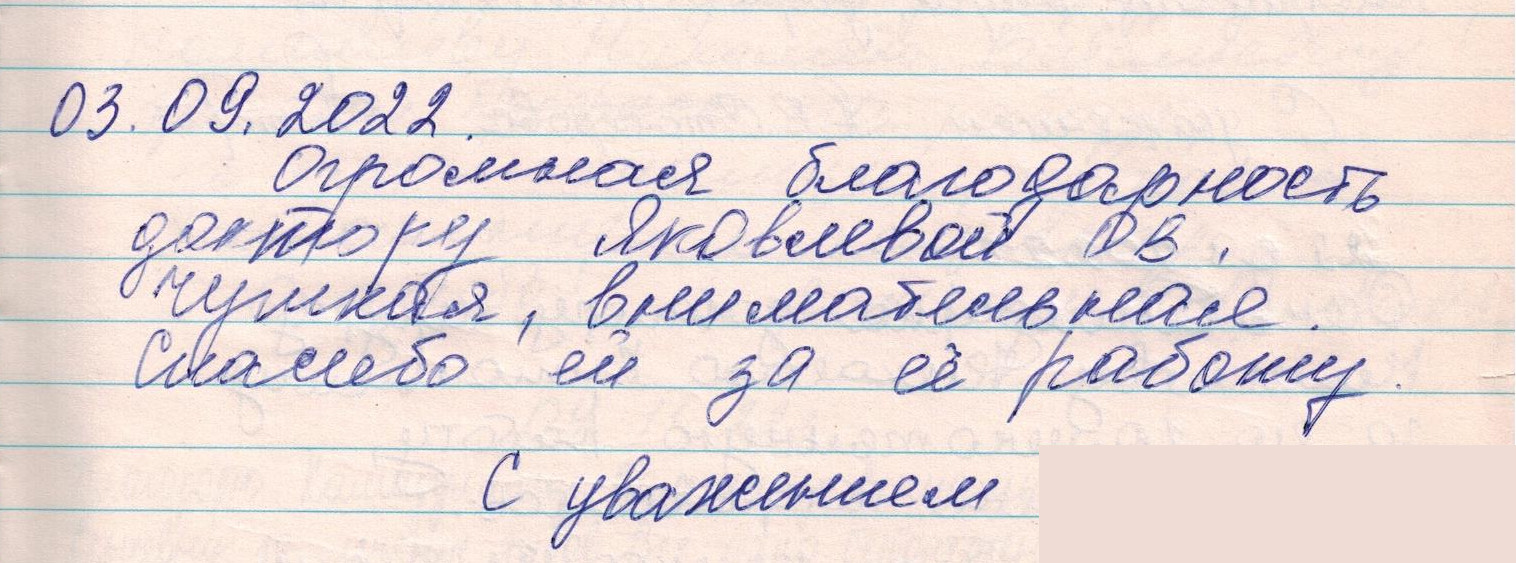 03.09.2022.
Огромная благодарность
доктору Яковлевой ОВ.
Чуткая, внимательная.
Спасибо ей за её работу.
С уважением